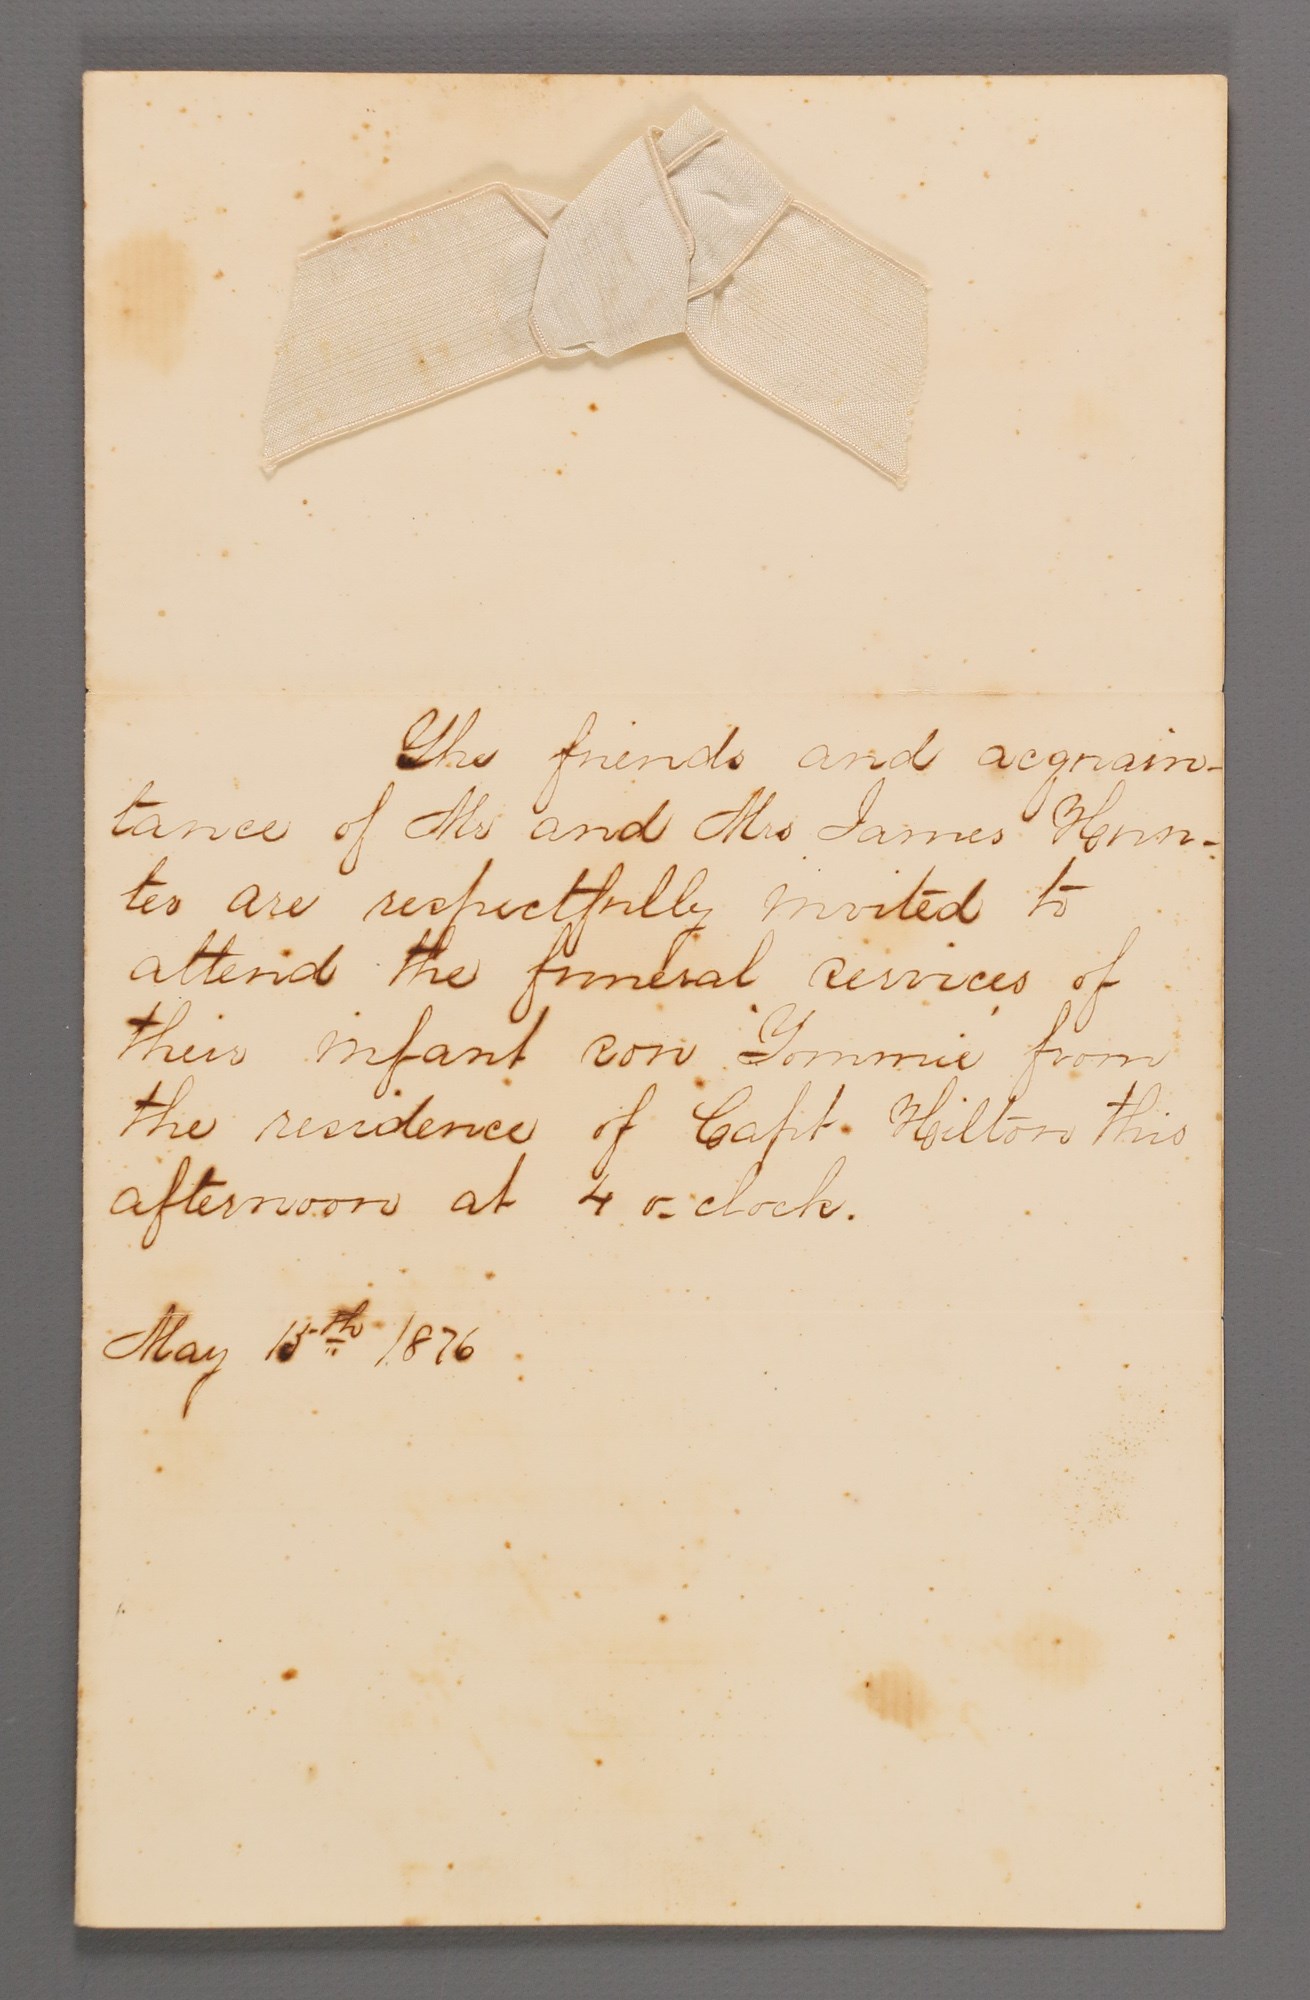 The friends and acquain-
tance of Mr and Mrs James Hun-
ter are respectfully invited to
attend the funeral services of
their infant son Tommie from
the residence of Capt. Hilton this
afternoon at 4 o-clock.
May 15th 1876